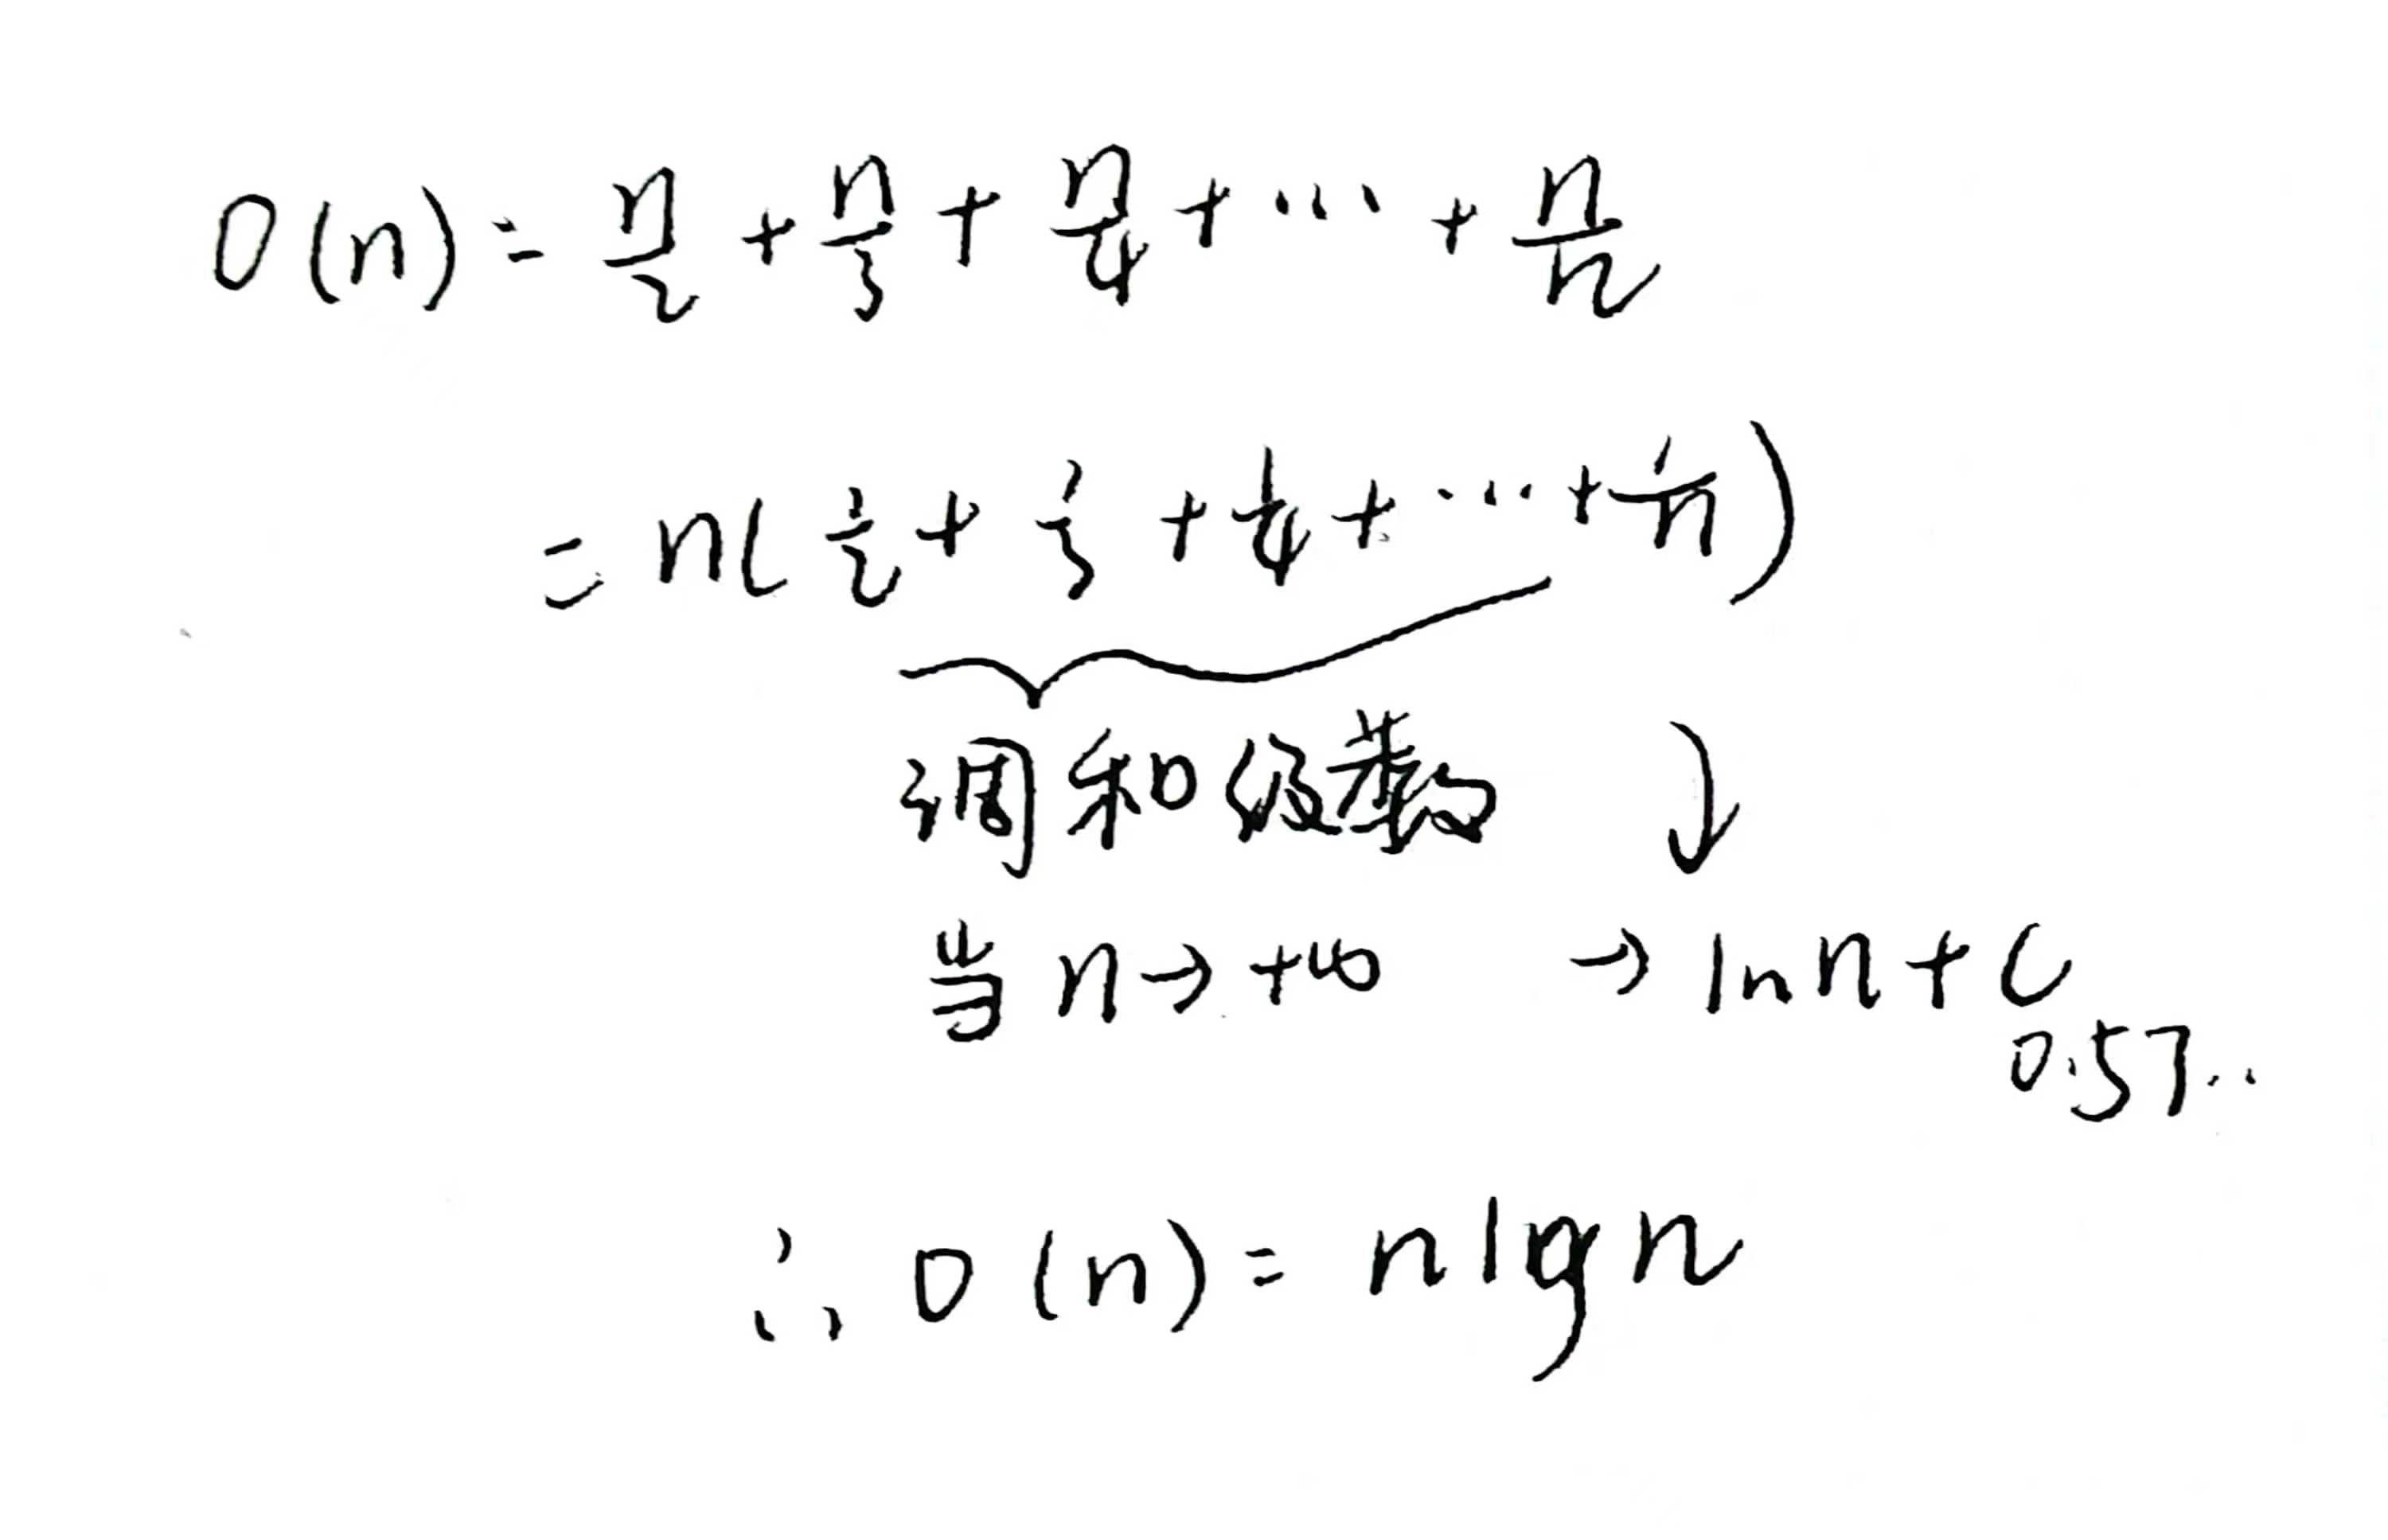 O(n) = n/2 + n/3 + n/4 + ... + n/n
= n(1/2 + 1/3 + 1/4 + ... + 1/n)
调和级数
当 n → +∞ → ln n + C
0.57..
∴ O(n) = n lg n